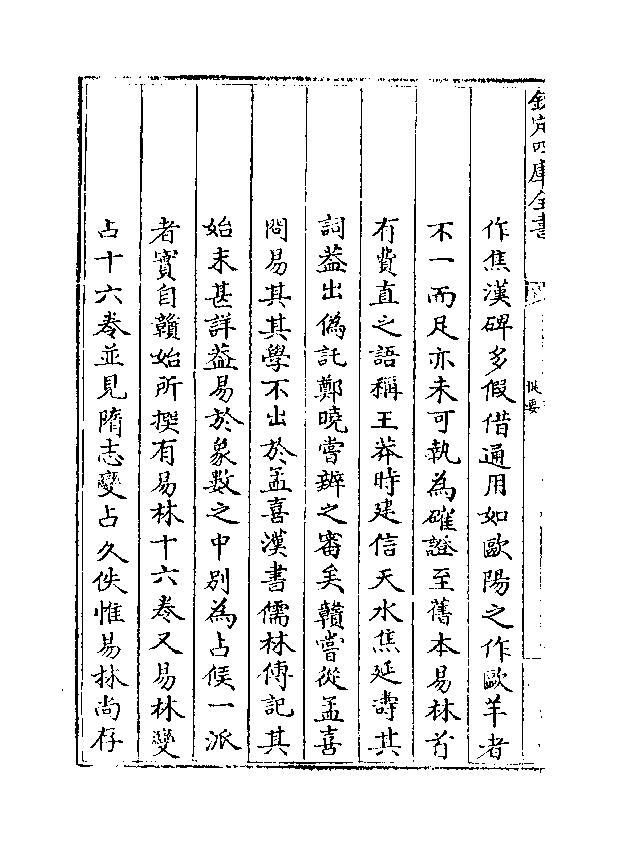 欽定四庫全書
提要
作焦漢碑多假借通用如歐陽之作歐羊者
不一而足亦未可執為確證至舊本易林首
有費直之語稱王莽時建信天水焦延壽其
詞葢出偽託鄭曉嘗辨之審矣贛嘗從孟喜
問易其其學不出於孟喜漢書儒林傳記其
始末甚詳葢易於象數之中別為占候一派
者實自贛始所撰有易林十六卷又易林變
占十六卷並見隋志變占久佚惟易林尚存